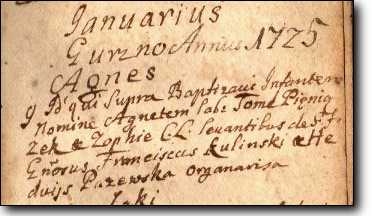 Ianuarius
Gurzno Annus 1725
Agnes
9 Id qui Supra Baptizavi Infantem
Nomine Agnetem lab: Some Pieniq
Zek & Zophie CL: levantibus de S: F:
Franciscus Kulinski & He
dvijs Pazewska organarisa